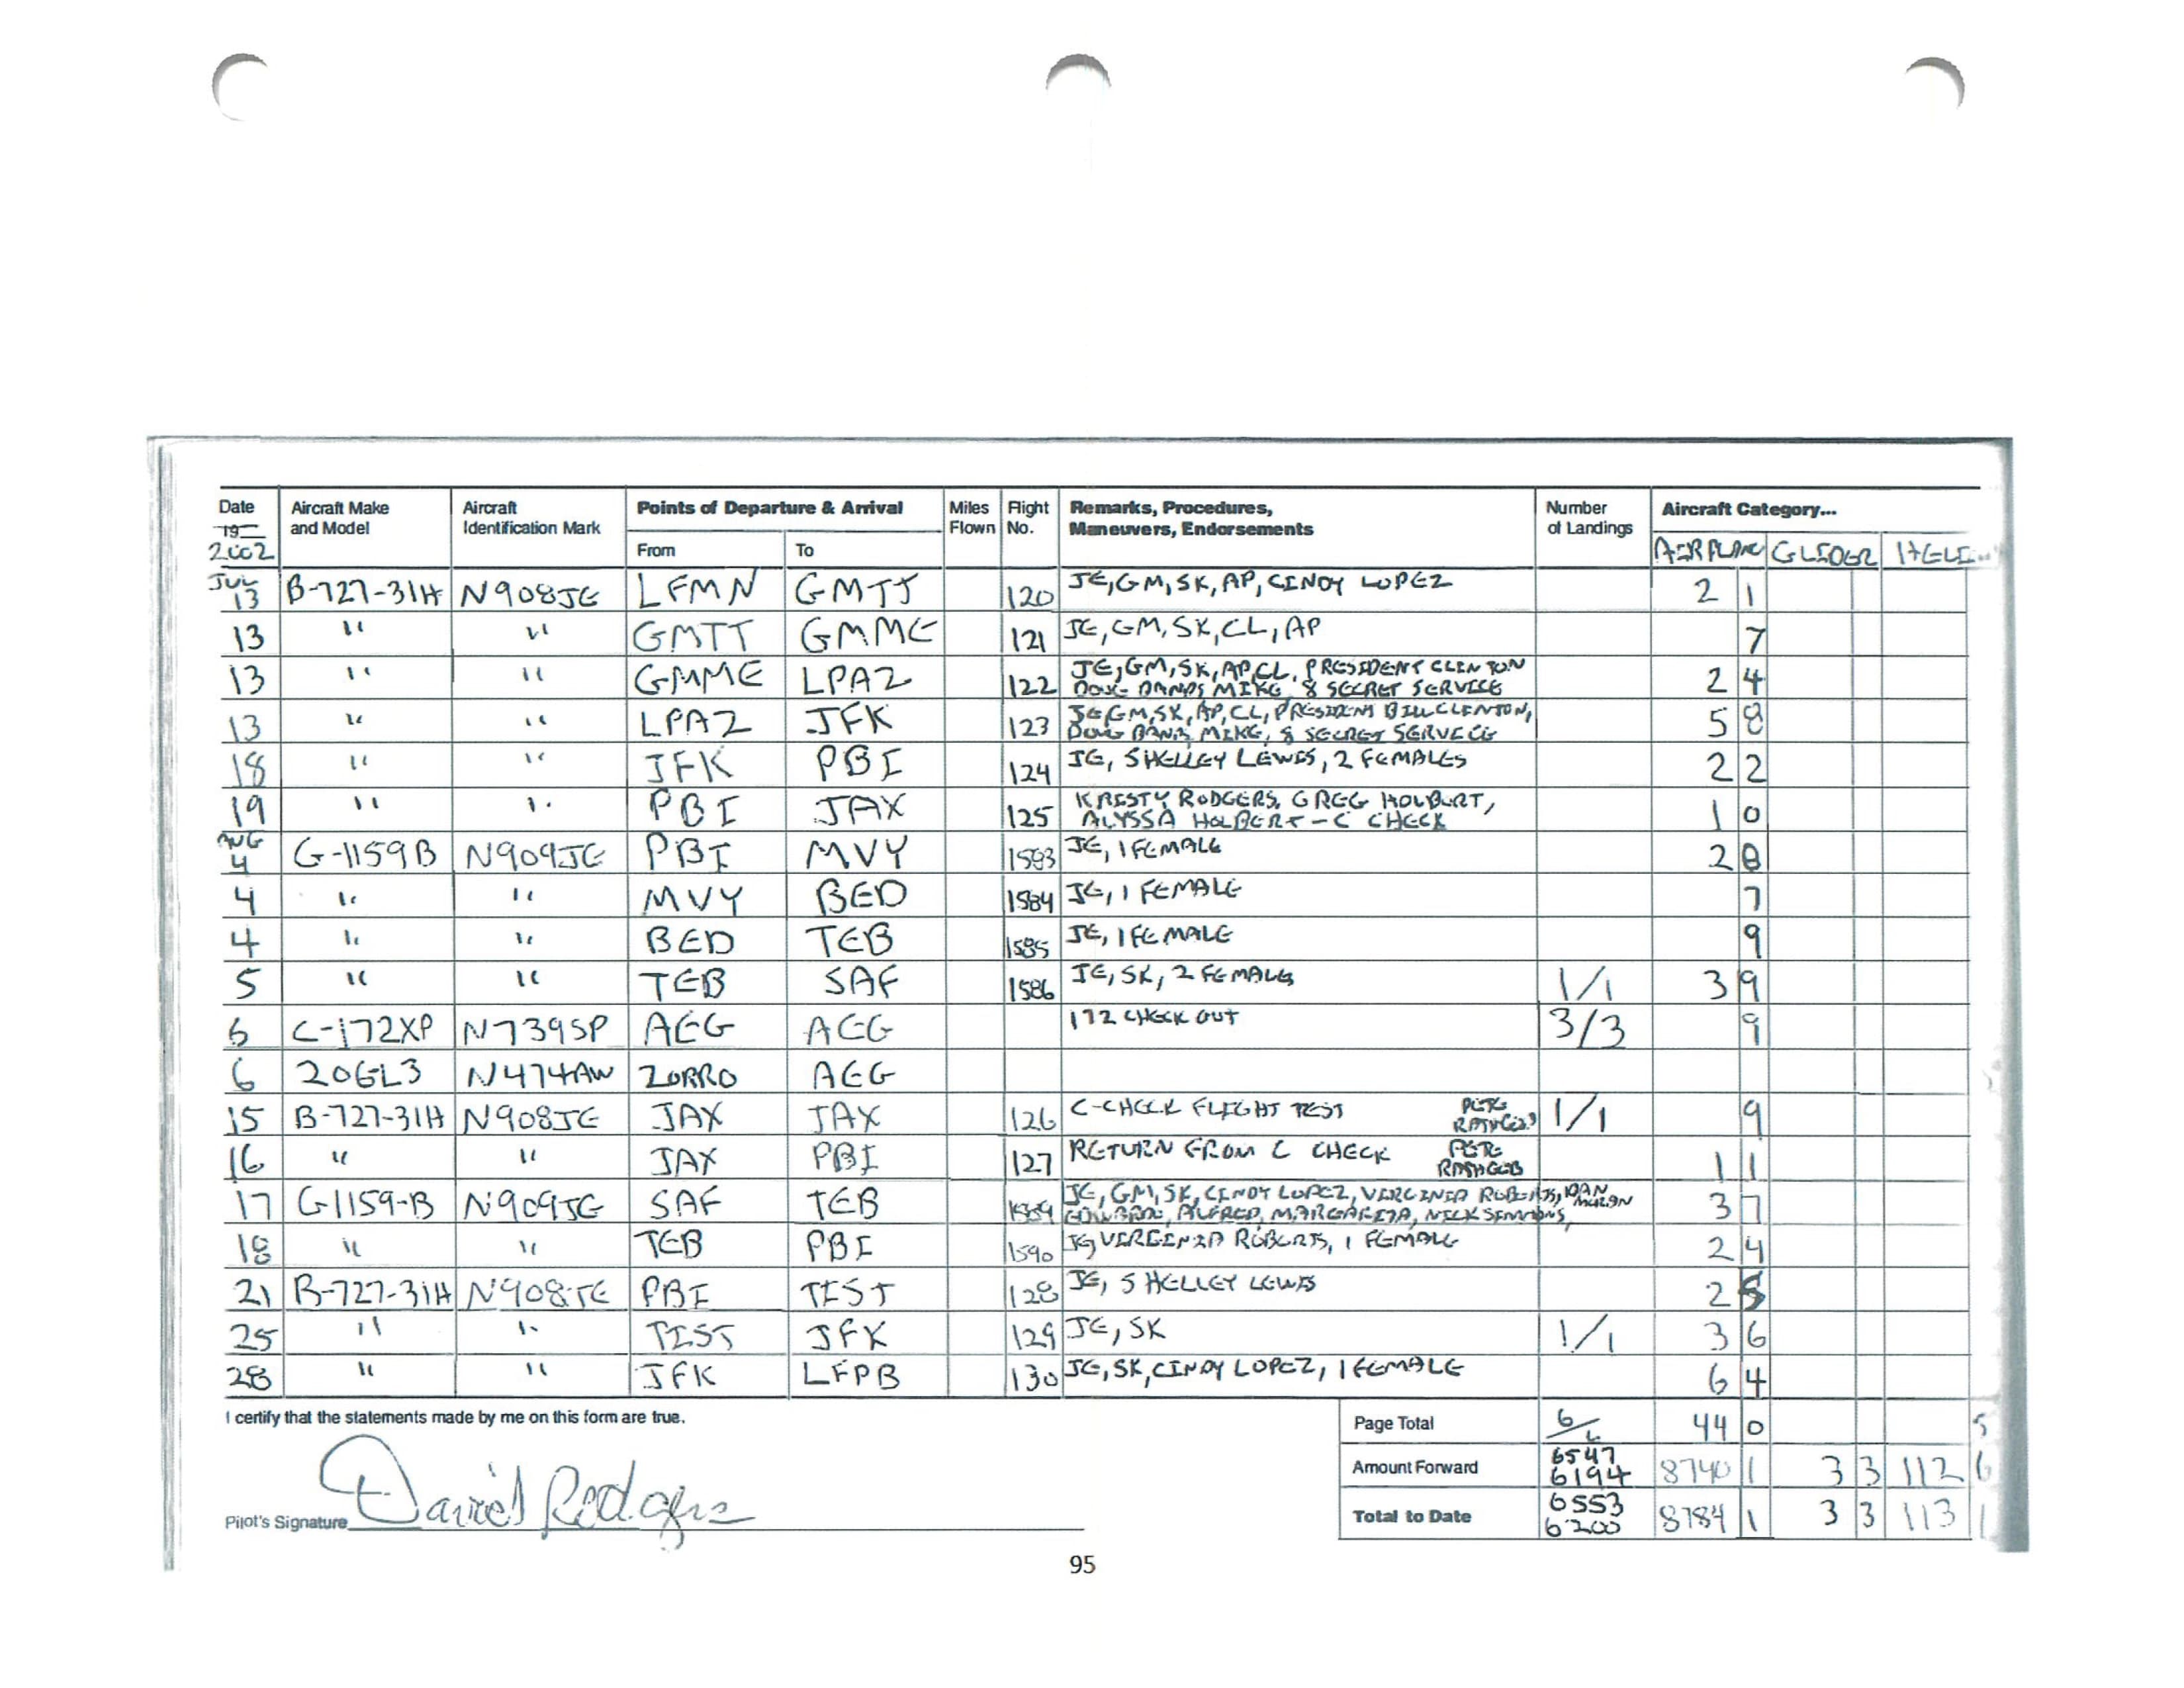 Date Aircraft Make Aircraft Points of Departure & Arrival Miles Flight Remarks, Procedures, Number Aircraft Category...
19 and Model Identification Mark Flown No. Maneuvers, Endorsements of Landings
2002 From To AIRPLANE GLIDER HELI
JUL 13 B-727-31H N908JE LFMN GMTT 120 JE, GM, SK, AP, CINDY LOPEZ 2 1
13 " " GMTT GMME 121 JE, GM, SK, CL, AP 7
13 " " GMME LPAZ 122 JE, GM, SK, AP, CL, PRESIDENT CLINTON 2 4
DOUG BANDS MIKE, 8 SECRET SERVICE
13 " " LPAZ JFK 123 JE, GM, SK, AP, CL, PRESIDENT BILL CLINTON, 5 8
DOUG BANDS MIKE, 8 SECRET SERVICE
18 " " JFK PBI 124 JE, SHELLEY LEWIS, 2 FEMALES 2 2
19 " " PBI JAX 125 KRISTY RODGERS, GREG HOLBERT, 1 0
ALYSSA HOLBERT - C CHECK
AUG 4 G-1159B N909JE PBI MVY 1583 JE, 1 FEMALE 2 8
4 " " MVY BED 1584 JE, 1 FEMALE 7
4 " " BED TEB 1585 JE, 1 FEMALE 9
5 " " TEB SAF 1586 JE, SK, 2 FEMALES 1/1 3 9
6 C-172XP N739SP AEG AEG 172 CHECK OUT 3/3 9
6 206L3 N474AW ZORRO AEG
15 B-727-31H N908JE JAX JAX 126 C-CHECK FLIGHT TEST PETE 1/1 9
16 " " JAX PBI 127 RETURN FROM C CHECK PETE 1 1
17 G1159-B N909JE SAF TEB 1589 JE, GM, SK, CINDY LOPEZ, VIRGINIA ROBERTS, DAN 3 7
ALFRED, MARGARITA, NICK SIMMONS,
18 " " TEB PBI 1590 JE, VIRGINIA ROBERTS, 1 FEMALE 2 4
21 B-727-31H N908JE PBI TIST 128 JE, SHELLEY LEWIS 2 5
25 " " TIST JFK 129 JE, SK 1/1 3 6
28 " " JFK LFPB 130 JE, SK, CINDY LOPEZ, 1 FEMALE 6 4
I certify that the statements made by me on this form are true. Page Total 6/6 44 0 5
Amount Forward 6547 6194 8740 1 3 3 112 6
Pilot's Signature David Rodgers Total to Date 6553 6200 8784 1 3 3 113 1
95